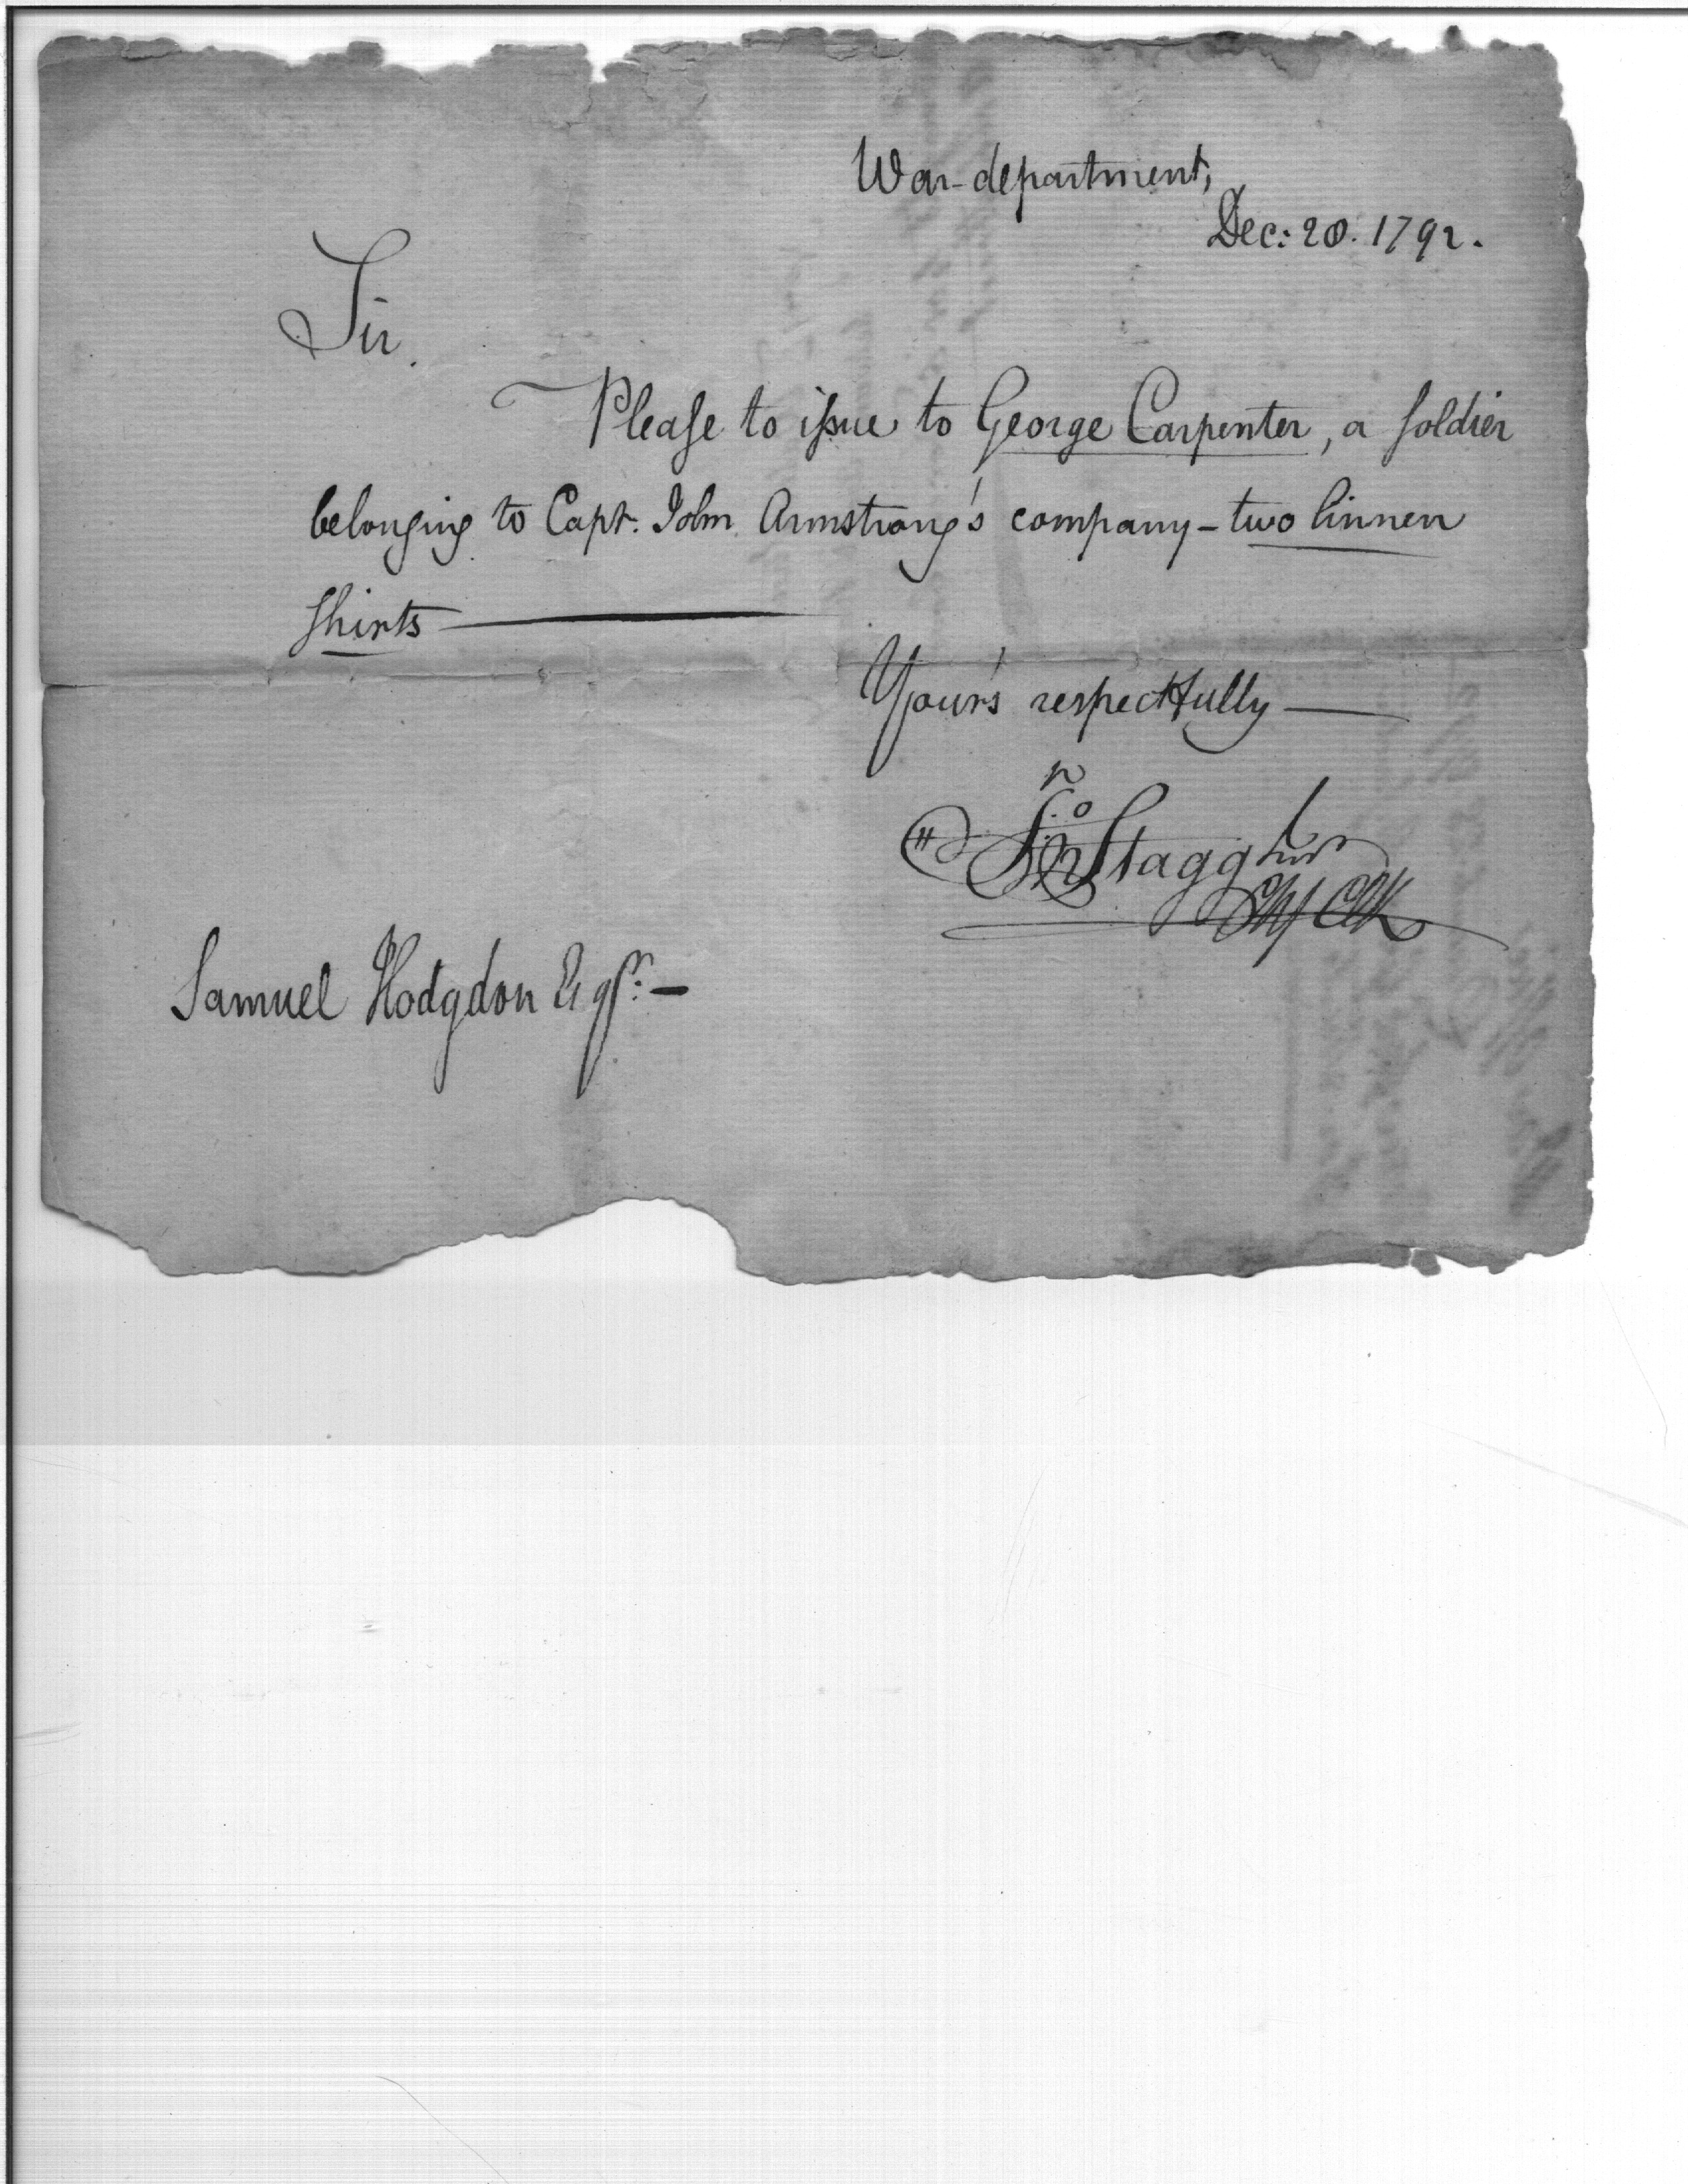 War-department,
Dec: 20. 1792.
Sir.
Pleaſe to iſsue to George Carpenter, a ſoldier
belonging to Capt. John Armstrong's company – two linnen
ſhirts
Your's respectfully —
Jno Stagg Junr
Chf Clk
Samuel Hodgdon Esqr. –